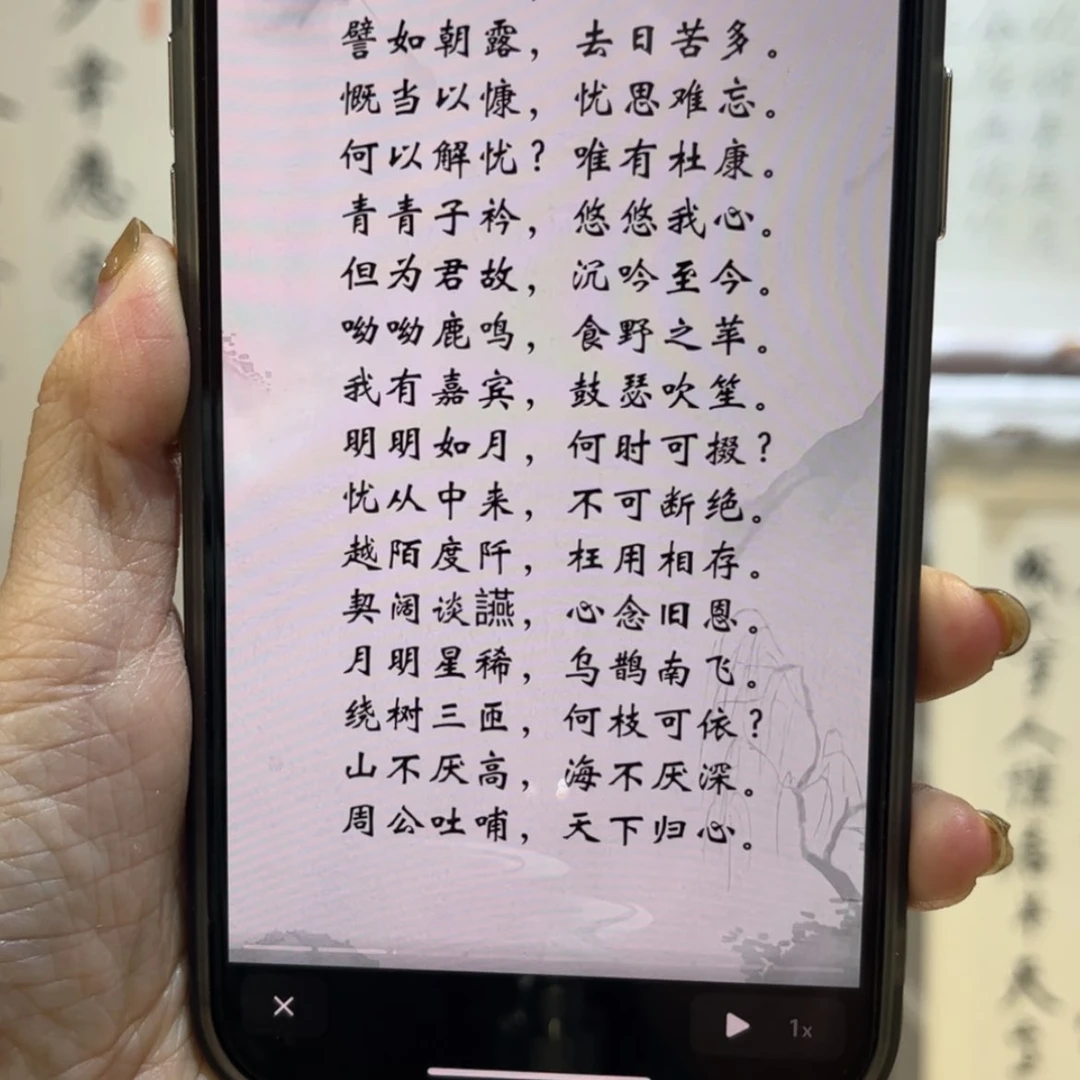 譬如朝露，去日苦多。
慨当以慷，忧思难忘。
何以解忧？唯有杜康。
青青子衿，悠悠我心。
但为君故，沉吟至今。
呦呦鹿鸣，食野之苹。
我有嘉宾，鼓瑟吹笙。
明明如月，何时可掇？
忧从中来，不可断绝。
越陌度阡，枉用相存。
契阔谈讌，心念旧恩。
月明星稀，乌鹊南飞。
绕树三匝，何枝可依？
山不厌高，海不厌深。
周公吐哺，天下归心。
1x